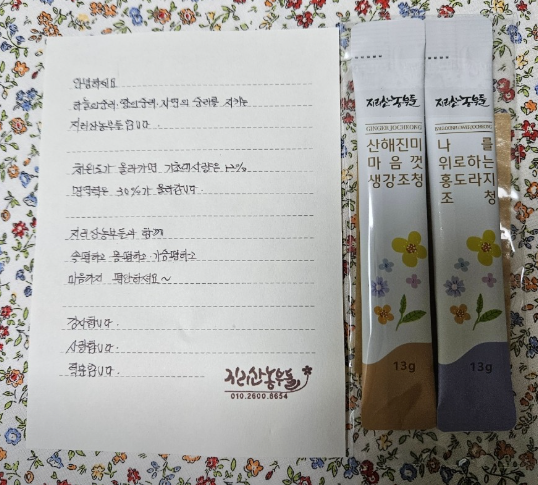 안녕하세요
하늘의순리·땅의순리·자연의 순리를 지키는
지리산농부들입니다.
체온도가 올라가면 기초대사량은 12%
면역력은 30%가 올라갑니다.
지리산농부들과 함께
숨편하고 몸편하고 가슴편하고
마음까지 평안하세요~
감사합니다.
사랑합니다.
덕분입니다.
지리산농부들
010.2600.8654
지리산농부들
산해진미
마음껏
생강조청
13g
지리산농부들
나를
위로하는
홍도라지
조청
13g